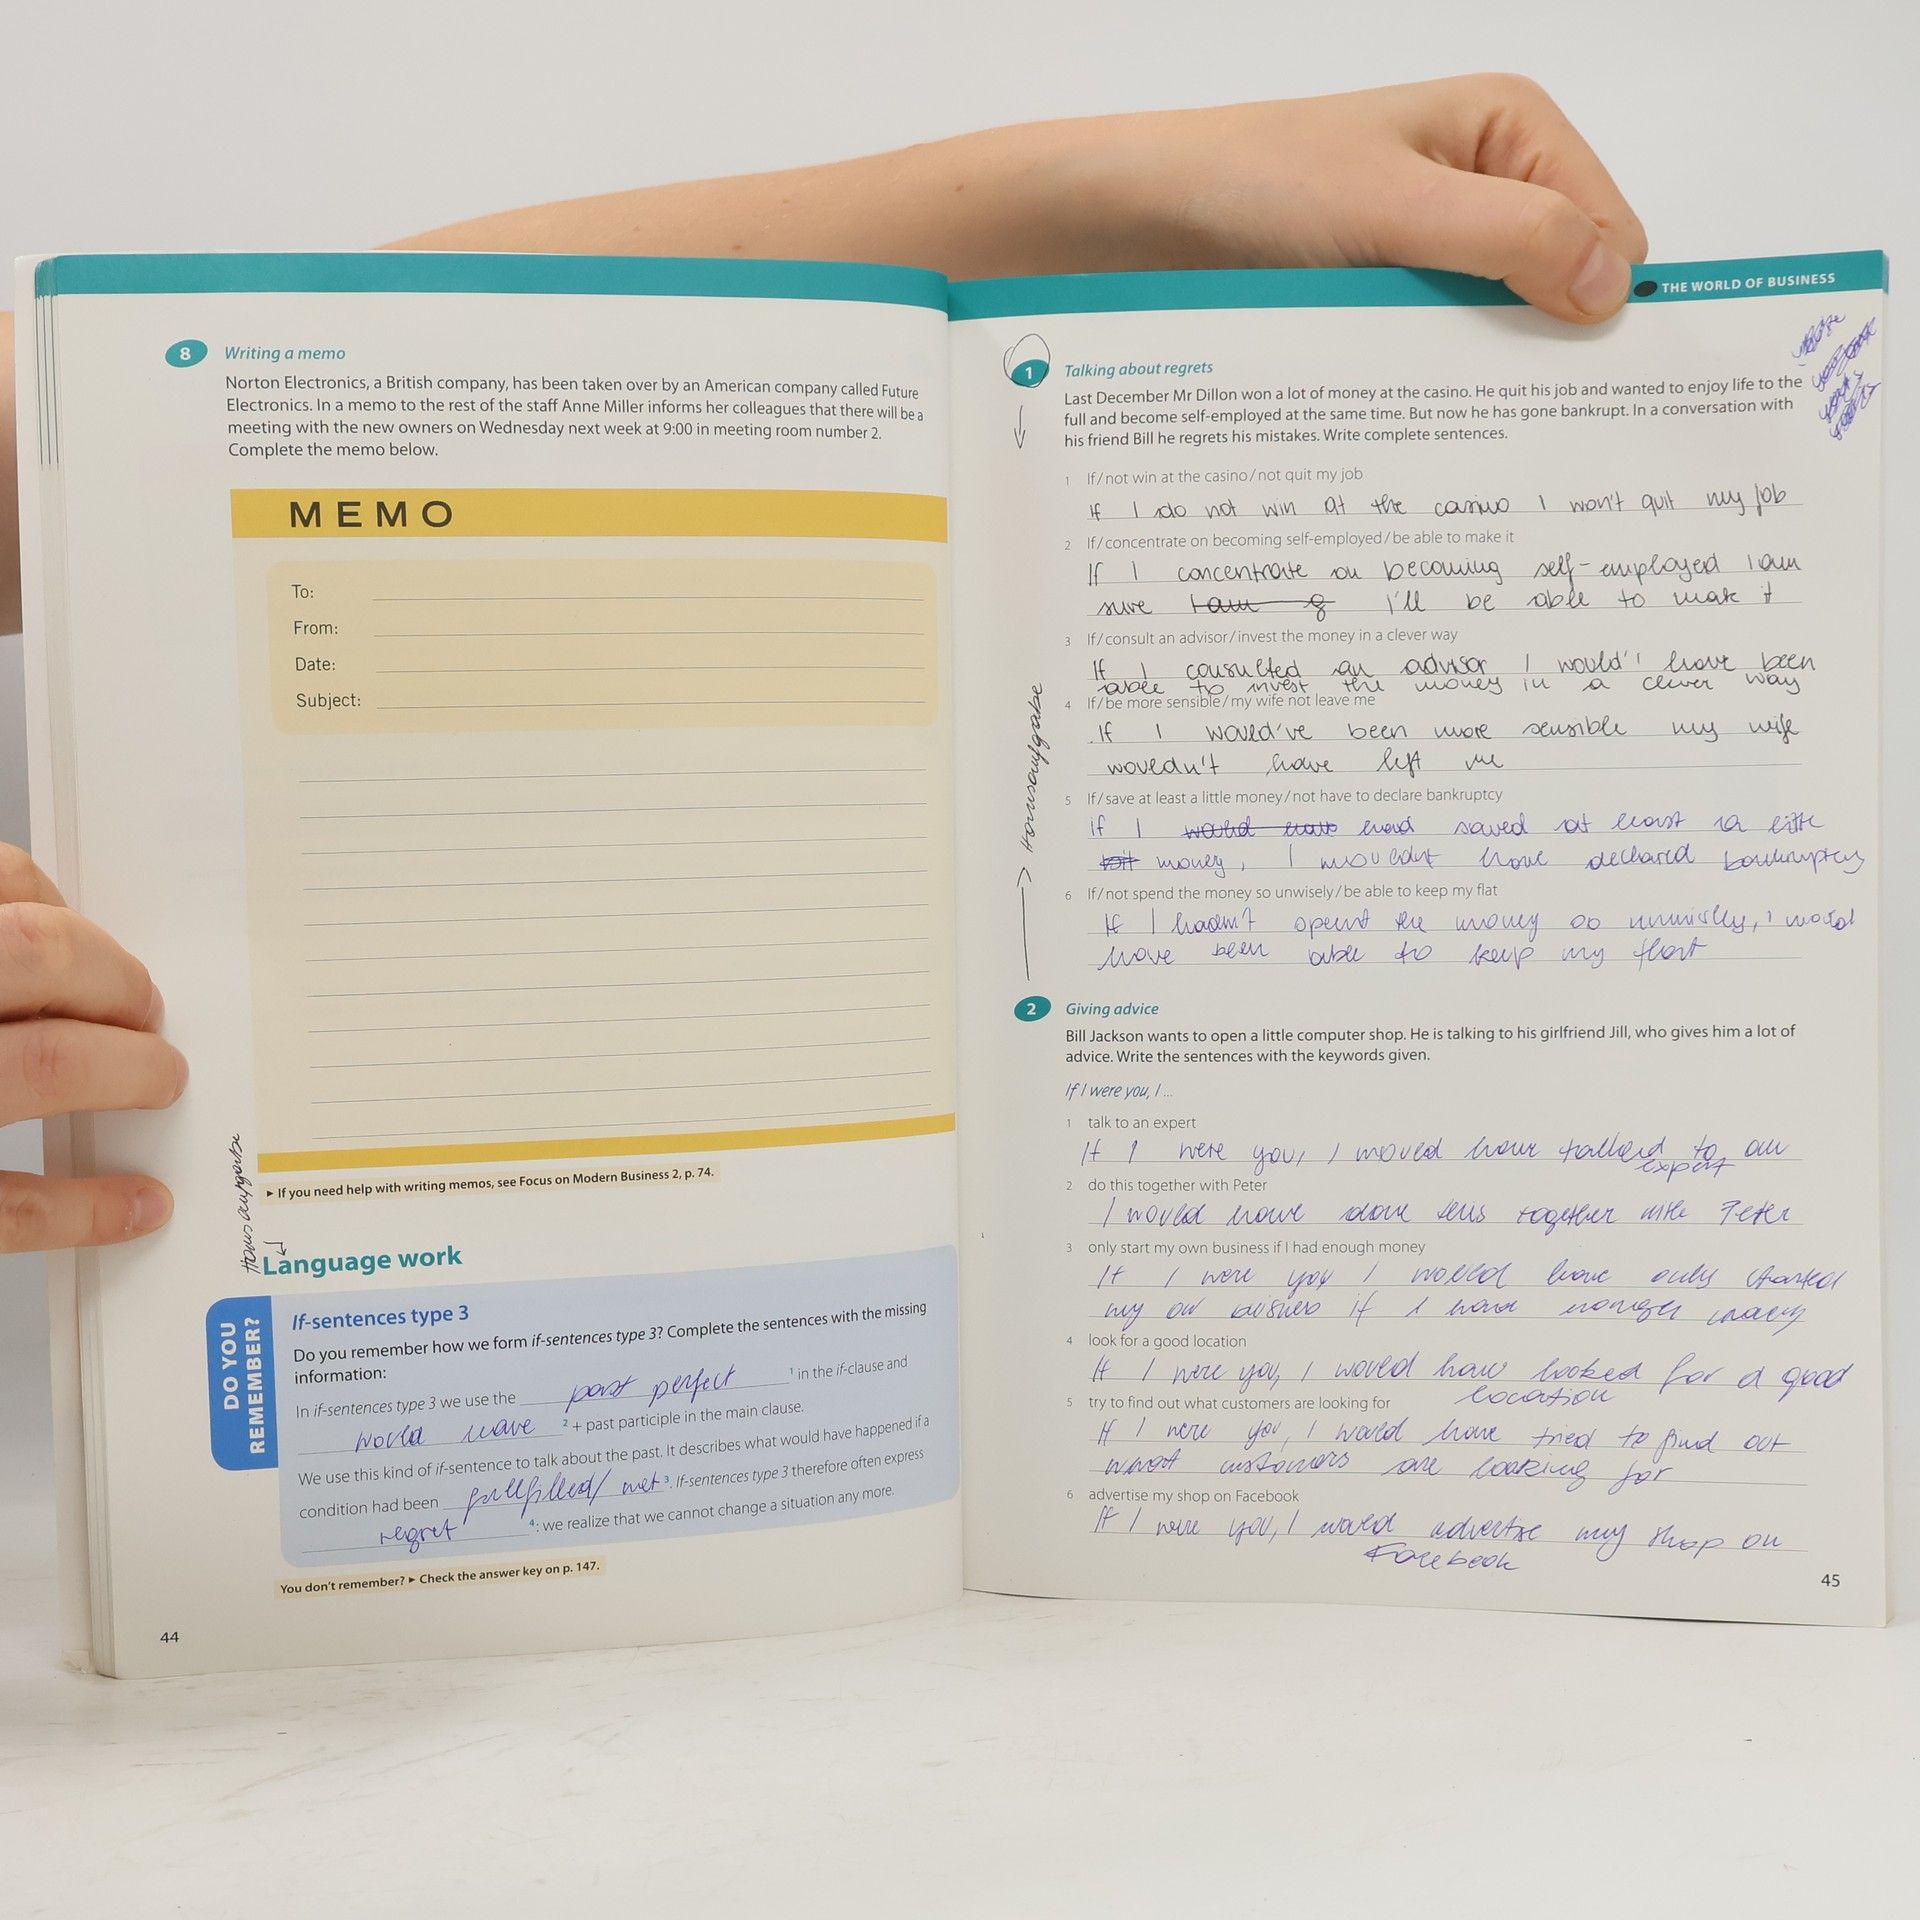 8 Writing a memo
Norton Electronics, a British company, has been taken over by an American company called Future
Electronics. In a memo to the rest of the staff Anne Miller informs her colleagues that there will be a
meeting with the new owners on Wednesday next week at 9:00 in meeting room number 2.
Complete the memo below.
MEMO
To:
From:
Date:
Subject:
► If you need help with writing memos, see Focus on Modern Business 2, p. 74.
Language work
DO YOU
REMEMBER?
If-sentences type 3
Do you remember how we form if-sentences type 3? Complete the sentences with the missing
information:
In if-sentences type 3 we use the past perfect 1 in the if-clause and
would have 2 + past participle in the main clause.
We use this kind of if-sentence to talk about the past. It describes what would have happened if a
condition had been fullfilled/ met 3. If-sentences type 3 therefore often express
regret 4: we realize that we cannot change a situation any more.
You don't remember? ► Check the answer key on p. 147.
44
THE WORLD OF BUSINESS
1 Talking about regrets
Last December Mr Dillon won a lot of money at the casino. He quit his job and wanted to enjoy life to the
full and become self-employed at the same time. But now he has gone bankrupt. In a conversation with
his friend Bill he regrets his mistakes. Write complete sentences.
1 If/not win at the casino/not quit my job
If I do not win at the casino I won't quit my job
2 If/concentrate on becoming self-employed/be able to make it
If I concentrate on becoming self-employed I am
sure I am I'll be able to mak it
3 If/consult an advisor/invest the money in a clever way
If I consulted an advisor I would' have been
able to invest the money in a clever way
4 If/be more sensible/my wife not leave me
If I would've been more sensible my wife
wouldn't have left me
5 If/save at least a little money/not have to declare bankruptcy
if I would have had saved at least a little
money, I wouldnt have declared bankruptcy
6 If/not spend the money so unwisely/be able to keep my flat
If I hadn't spent the money so unwislly, I would
have been able to keep my flat
2 Giving advice
Bill Jackson wants to open a little computer shop. He is talking to his girlfriend Jill, who gives him a lot of
advice. Write the sentences with the keywords given.
If I were you, I ...
1 talk to an expert
If I were you, I would have talked to an
expert
2 do this together with Peter
I would have done this together with Peter
3 only start my own business if I had enough money
If I were you I would have only started
my if I have money
4 look for a good location
If I were you, I would have looked for a good
location
5 try to find out what customers are looking for
If I were you, I would have tried to find out
what customers are looking for
6 advertise my shop on Facebook
If I were you, I would advertise my shop on
Facebook
45